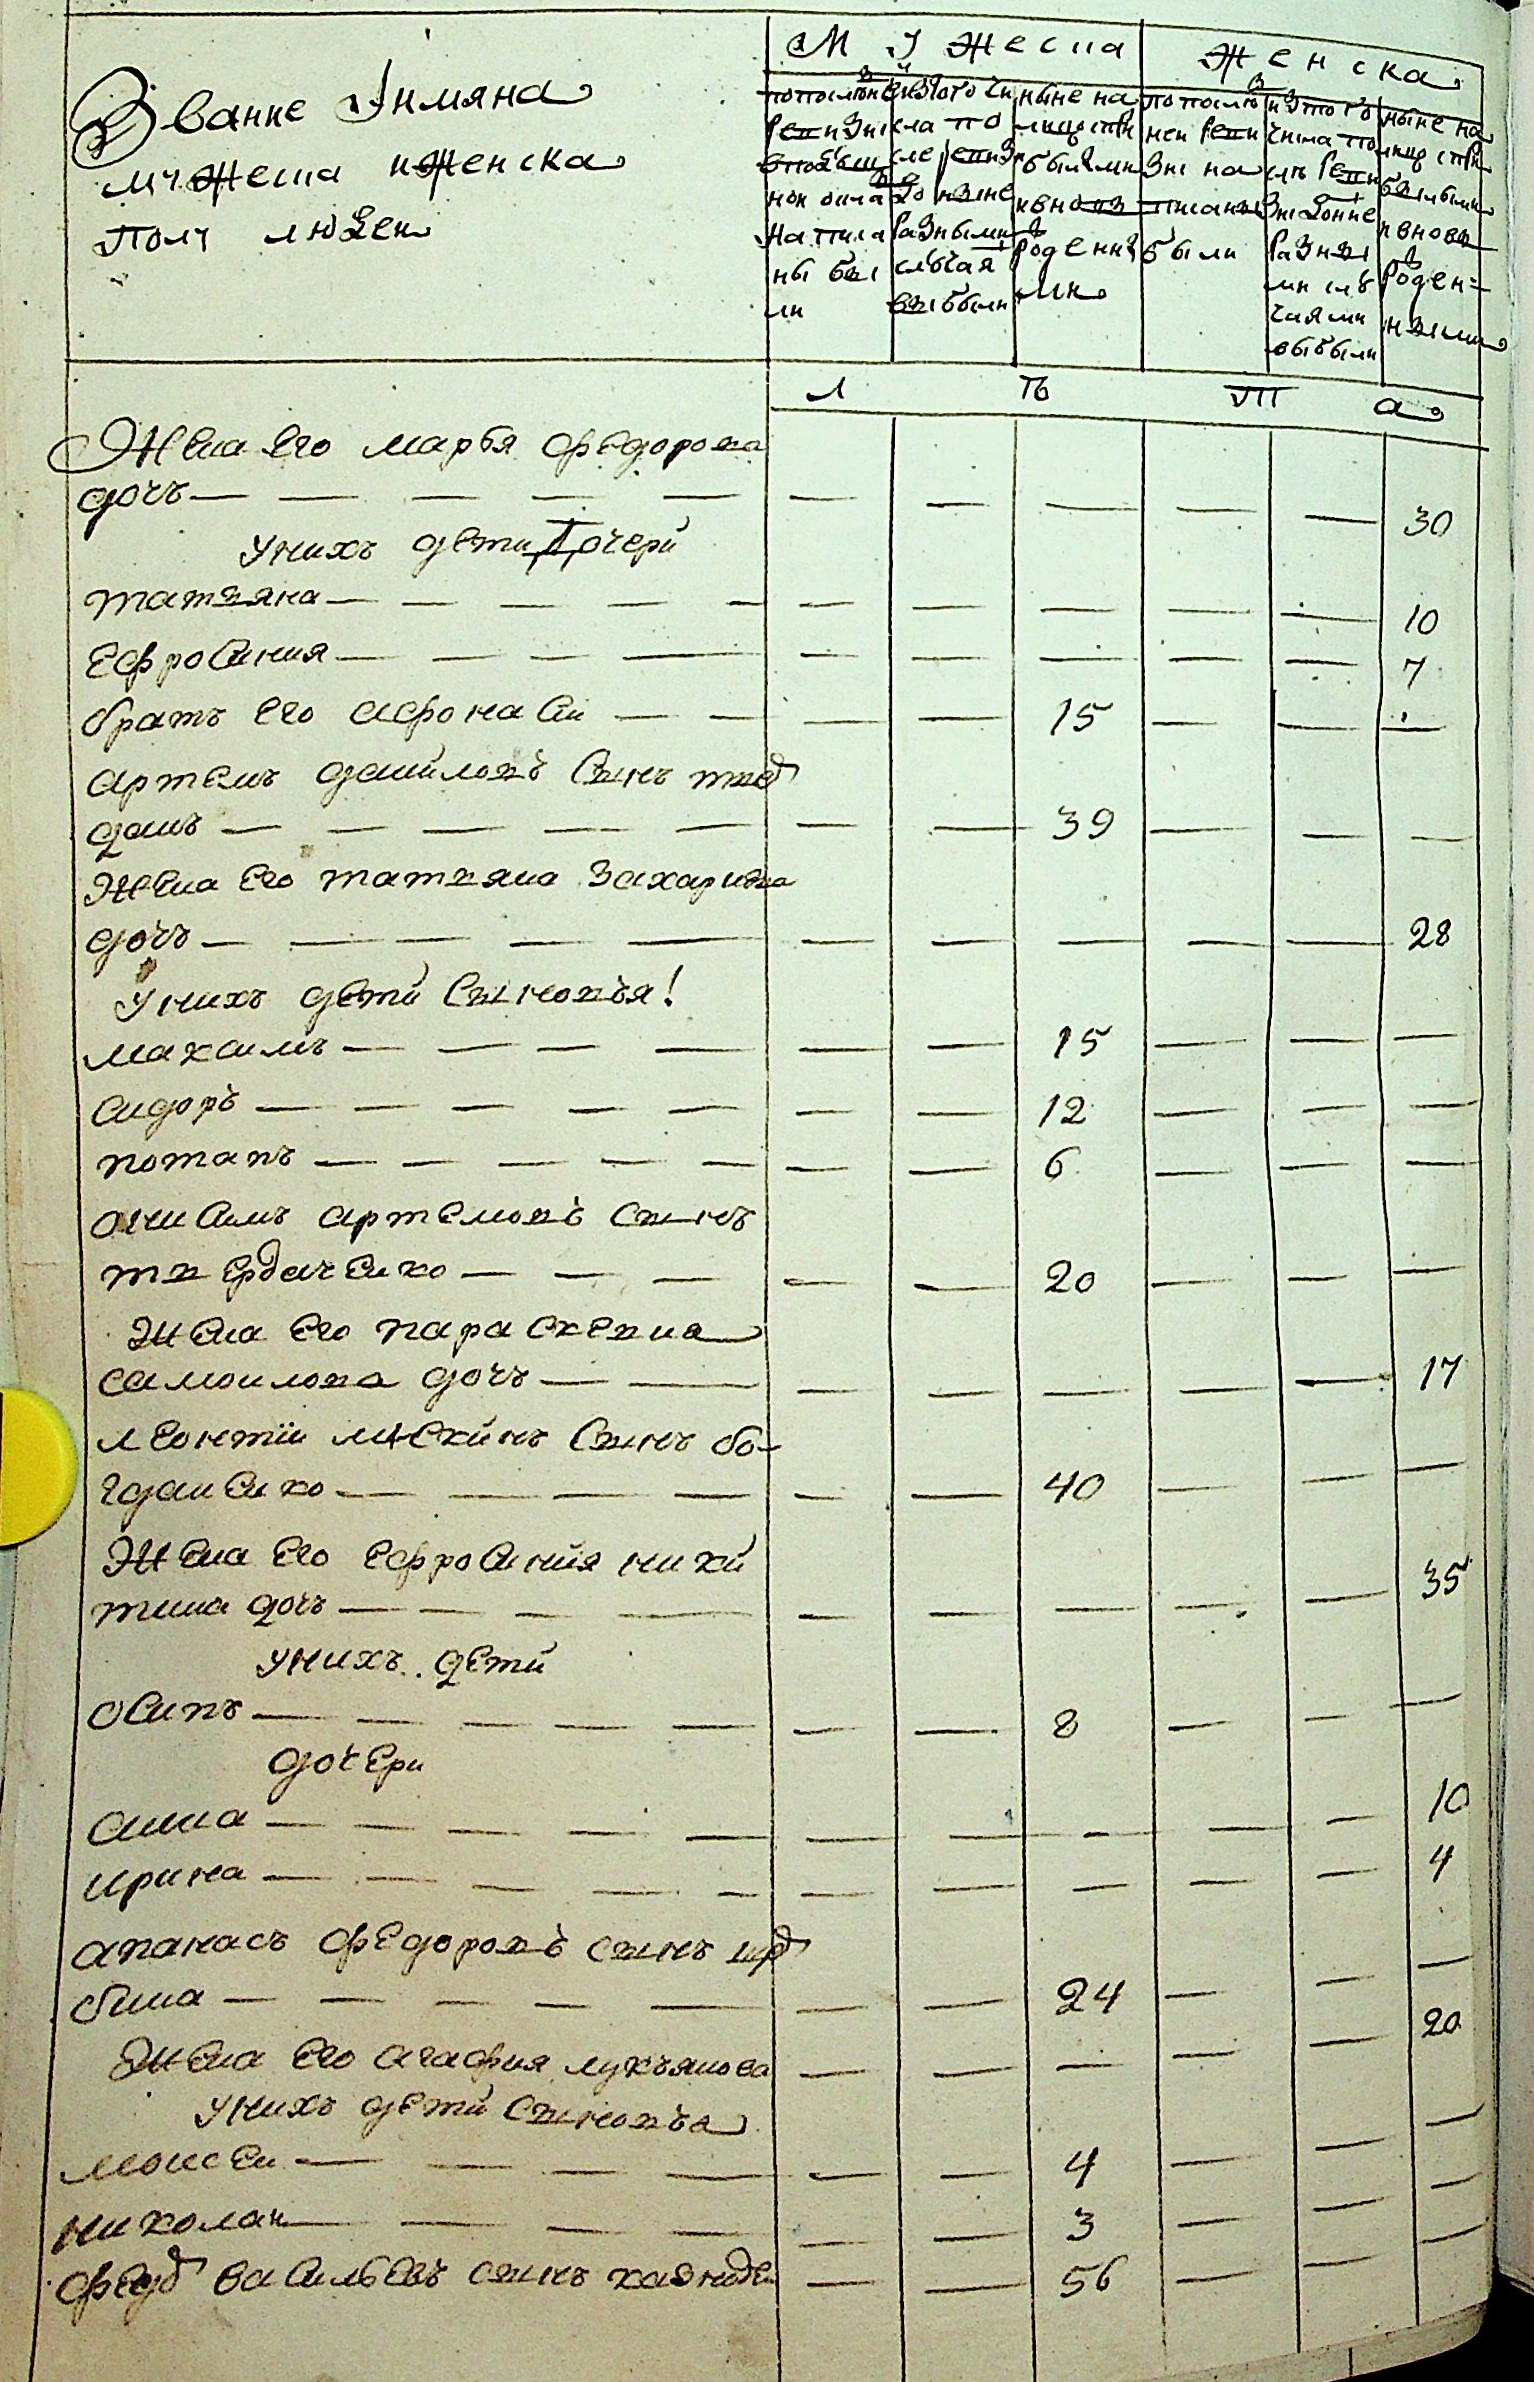 Звание Iимяна
мужеска иженска
полу людеи
М У жеска
Женска
попослѣднеи ревизиї вподушной окла написаны были
изтого числа после ревизиї до ныне разными случаи выбыли
ныне на лицо прибылыми ивновь роденнами
попослѣднеи ревизиї написаны были
изтого числа послѣ ревизиї доныне разными случаями выбыли
ныне на лицо прибылыми ивновь роденными
Л Ѣ Т а
Жена его марья федорова
дочъ — 30
унихъ дети дочери
татияна — 10
ефросиния — 7
братъ его афонаси — 15
артемъ данiловъ сынъ
— 39
жена его татияна захариева
дочъ — 28
унихъ дети сыновья!
максимъ — 15
сидоръ — 12
потапъ — 6
онисимъ артемовъ сынъ
твердаченко — 20
жена его параскевия
самоилова дочъ — 17
леонтiи сынъ бо-
гданенко — 40
жена его ефросиния ники
тина дочъ — 35
унихъ дети
осипъ — 8
дочери
анна — 10
ирина — 4
апанасъ федоровъ сынъ
— 24
жена его агафия лукъянова — 20
унихъ дети сыновъа
моисеи — 4
николаи — 3
федоръ васильевъ сынъ — 56